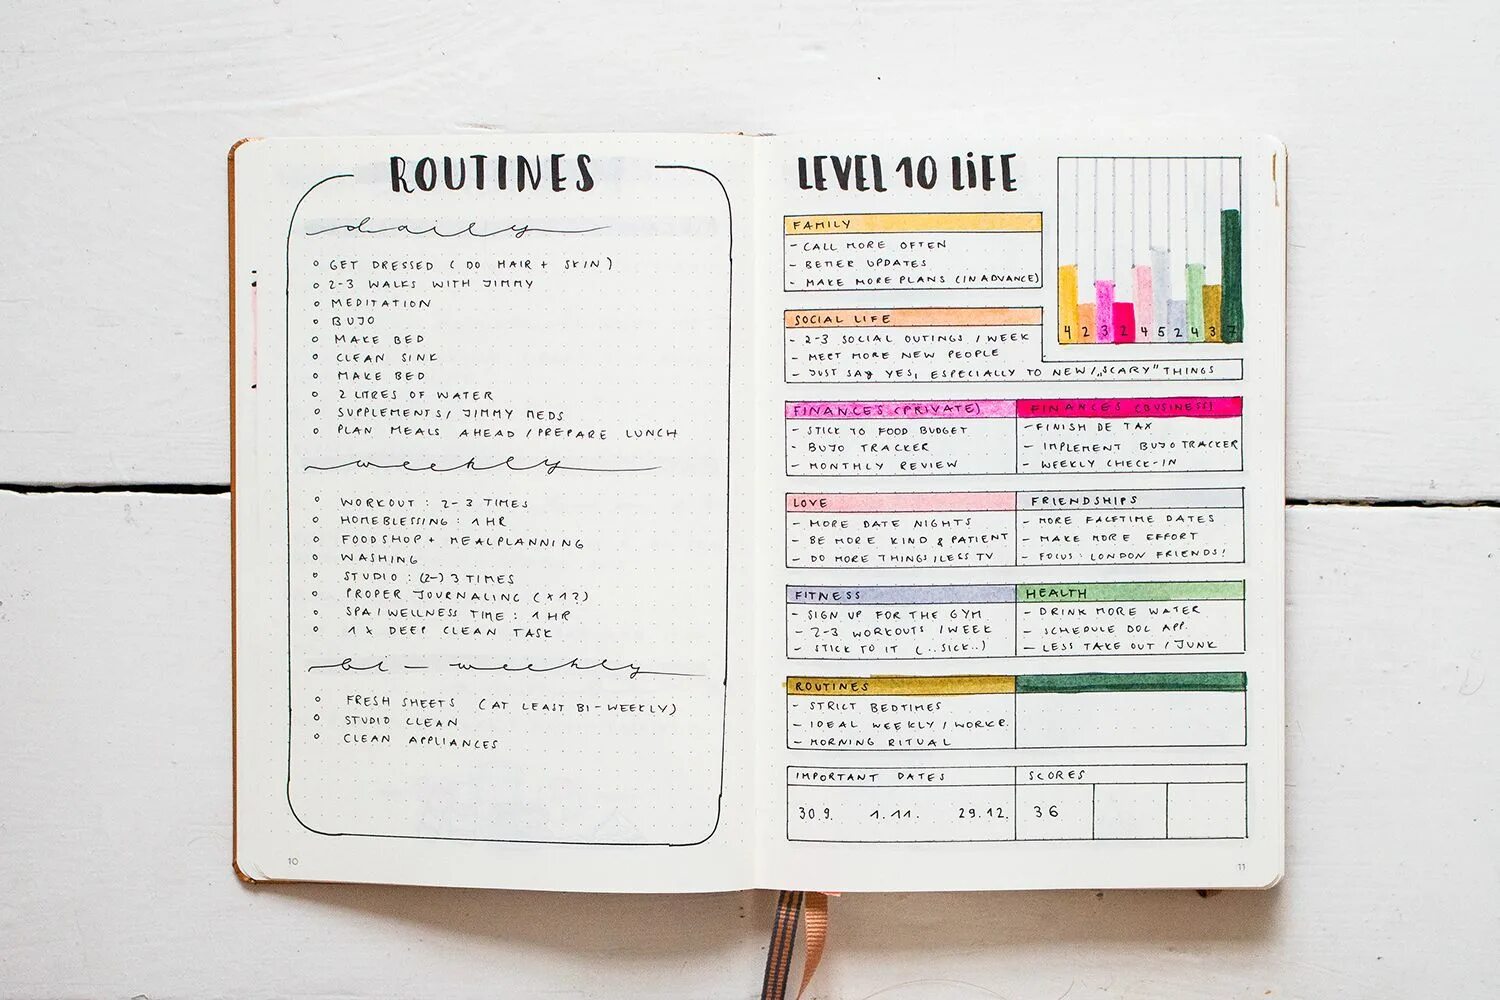 ROUTINES
daily
GET DRESSED (DO HAIR + SKIN)
2-3 WALKS WITH JIMMY
MEDITATION
BUJO
MAKE BED
CLEAN SINK
MAKE BED
2 LITRES OF WATER
SUPPLEMENTS/ JIMMY MEDS
PLAN MEALS AHEAD /PREPARE LUNCH
weekly
WORKOUT : 2-3 TIMES
HOMEBLESSING : 1 HR
FOODSHOP + MEALPLANNING
WASHING
STUDIO : (2-) 3 TIMES
PROPER JOURNALING (x1?)
SPA/WELLNESS TIME : 1 HR
1 x DEEP CLEAN TASK
bi-weekly
FRESH SHEETS (AT LEAST BI-WEEKLY)
STUDIO CLEAN
CLEAN APPLIANCES
10
LEVEL 10 LiFE
4 2 3 2 4 5 2 4 3 7
FAMILY
- CALL MORE OFTEN
- BETTER UPDATES
- MAKE MORE PLANS (IN ADVANCE)
SOCIAL LIFE
- 2-3 SOCIAL OUTINGS /WEEK
- MEET MORE NEW PEOPLE
- JUST SAY YES, ESPECIALLY TO NEW/„SCARY" THINGS
FINANCES (PRIVATE)
- STICK TO FOOD BUDGET
- BUJO TRACKER
- MONTHLY REVIEW
FINANCES (BUSINESS)
- FINISH DE TAX
- IMPLEMENT BUJO TRACKER
- WEEKLY CHECK-IN
LOVE
- MORE DATE NIGHTS
- BE MORE KIND & PATIENT
- DO MORE THINGS/LESS TV
FRIENDSHIPS
- MORE FACETIME DATES
- MAKE MORE EFFORT
- FOCUS: LONDON FRIENDS!
FITNESS
- SIGN UP FOR THE GYM
- 2-3 WORKOUTS /WEEK
- STICK TO IT (..SICK..)
HEALTH
- DRINK MORE WATER
- SCHEDULE DOC APP.
- LESS TAKE OUT / JUNK
ROUTINES
- STRICT BEDTIMES
- IDEAL WEEKLY / WORKP.
- MORNING RITUAL
IMPORTANT DATES
30.9. 1.11. 29.12.
SCORES
36
11